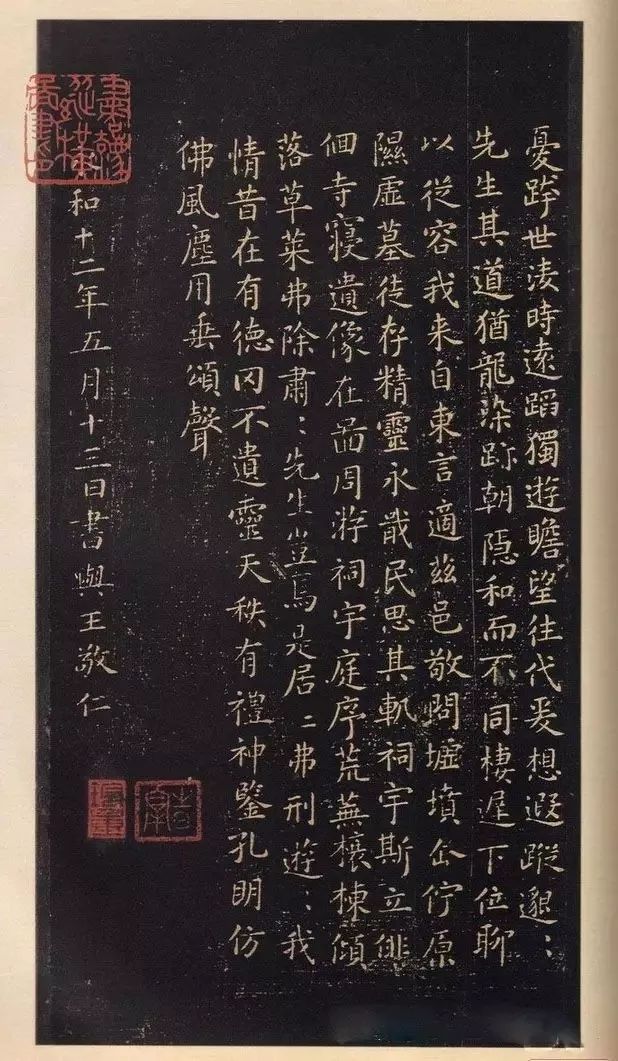 憂跨世淩時遠蹈獨遊瞻望往代爰想遐蹤邈〻
先生其道猶龍染跡朝隐和而不同棲遟下位聊
以從容我来自東言適茲邑敬問墟墳企佇原
隰虛墓徒存精靈永戢民思其軌祠宇斯立俳
佪寺寝遺像在啚周游祠宇庭序荒蕪榱棟傾
落草莱弗除肅〻先生豈焉是居〻弗刑遊〻我
情昔在有德罔不遺靈天秩有禮神鑒孔明仿
佛風塵用垂頌聲
和十二年五月十三日書與王敬仁